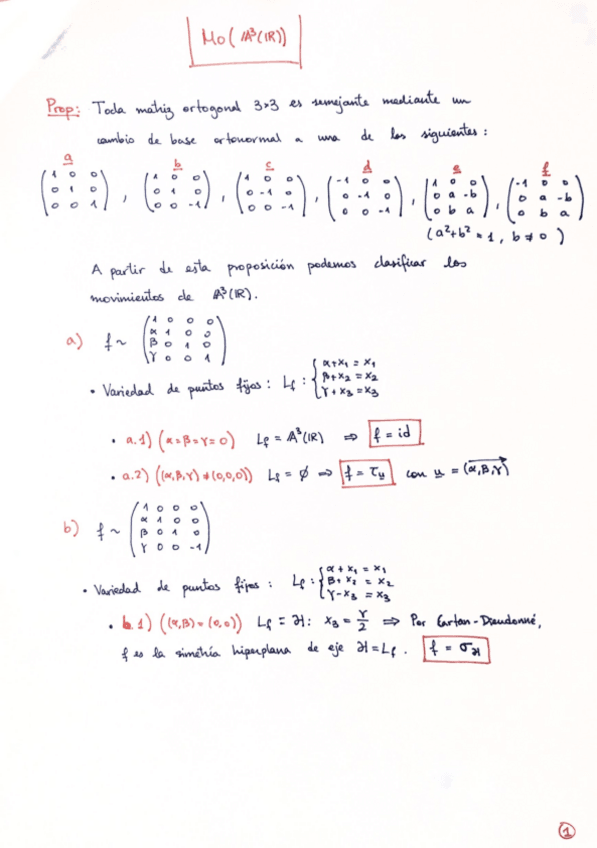 Mo(A³(ℝ))
Prop: Toda matriz ortogonal 3×3 es semejante mediante un
cambio de base ortonormal a una de las siguientes:
a b c d e f
(1 0 0 / 0 1 0 / 0 0 1), (1 0 0 / 0 1 0 / 0 0 -1), (1 0 0 / 0 -1 0 / 0 0 -1), (-1 0 0 / 0 -1 0 / 0 0 -1), (1 0 0 / 0 a -b / 0 b a), (-1 0 0 / 0 a -b / 0 b a)
(a²+b²=1, b≠0)
A partir de esta proposición podemos clasificar los
movimientos de A³(ℝ).
a) f ~ (1 0 0 0 / α 1 0 0 / β 0 1 0 / γ 0 0 1)
• Variedad de puntos fijos: Lf: { α+x₁ = x₁ / β+x₂ = x₂ / γ+x₃ = x₃
• a.1) (α=β=γ=0) Lf = A³(ℝ) ⇒ f = id
• a.2) ((α,β,γ)≠(0,0,0)) Lf = ∅ ⇒ f = τu con u = (α,β,γ)
b) f ~ (1 0 0 0 / α 1 0 0 / β 0 1 0 / γ 0 0 -1)
• Variedad de puntos fijos: Lf: { α+x₁ = x₁ / β+x₂ = x₂ / γ-x₃ = x₃
• b.1) ((α,β)=(0,0)) Lf = H: x₃ = γ/2 ⇒ Por Cartan-Dieudonné,
f es la simetría hiperplana de eje H=Lf. f = σH
1